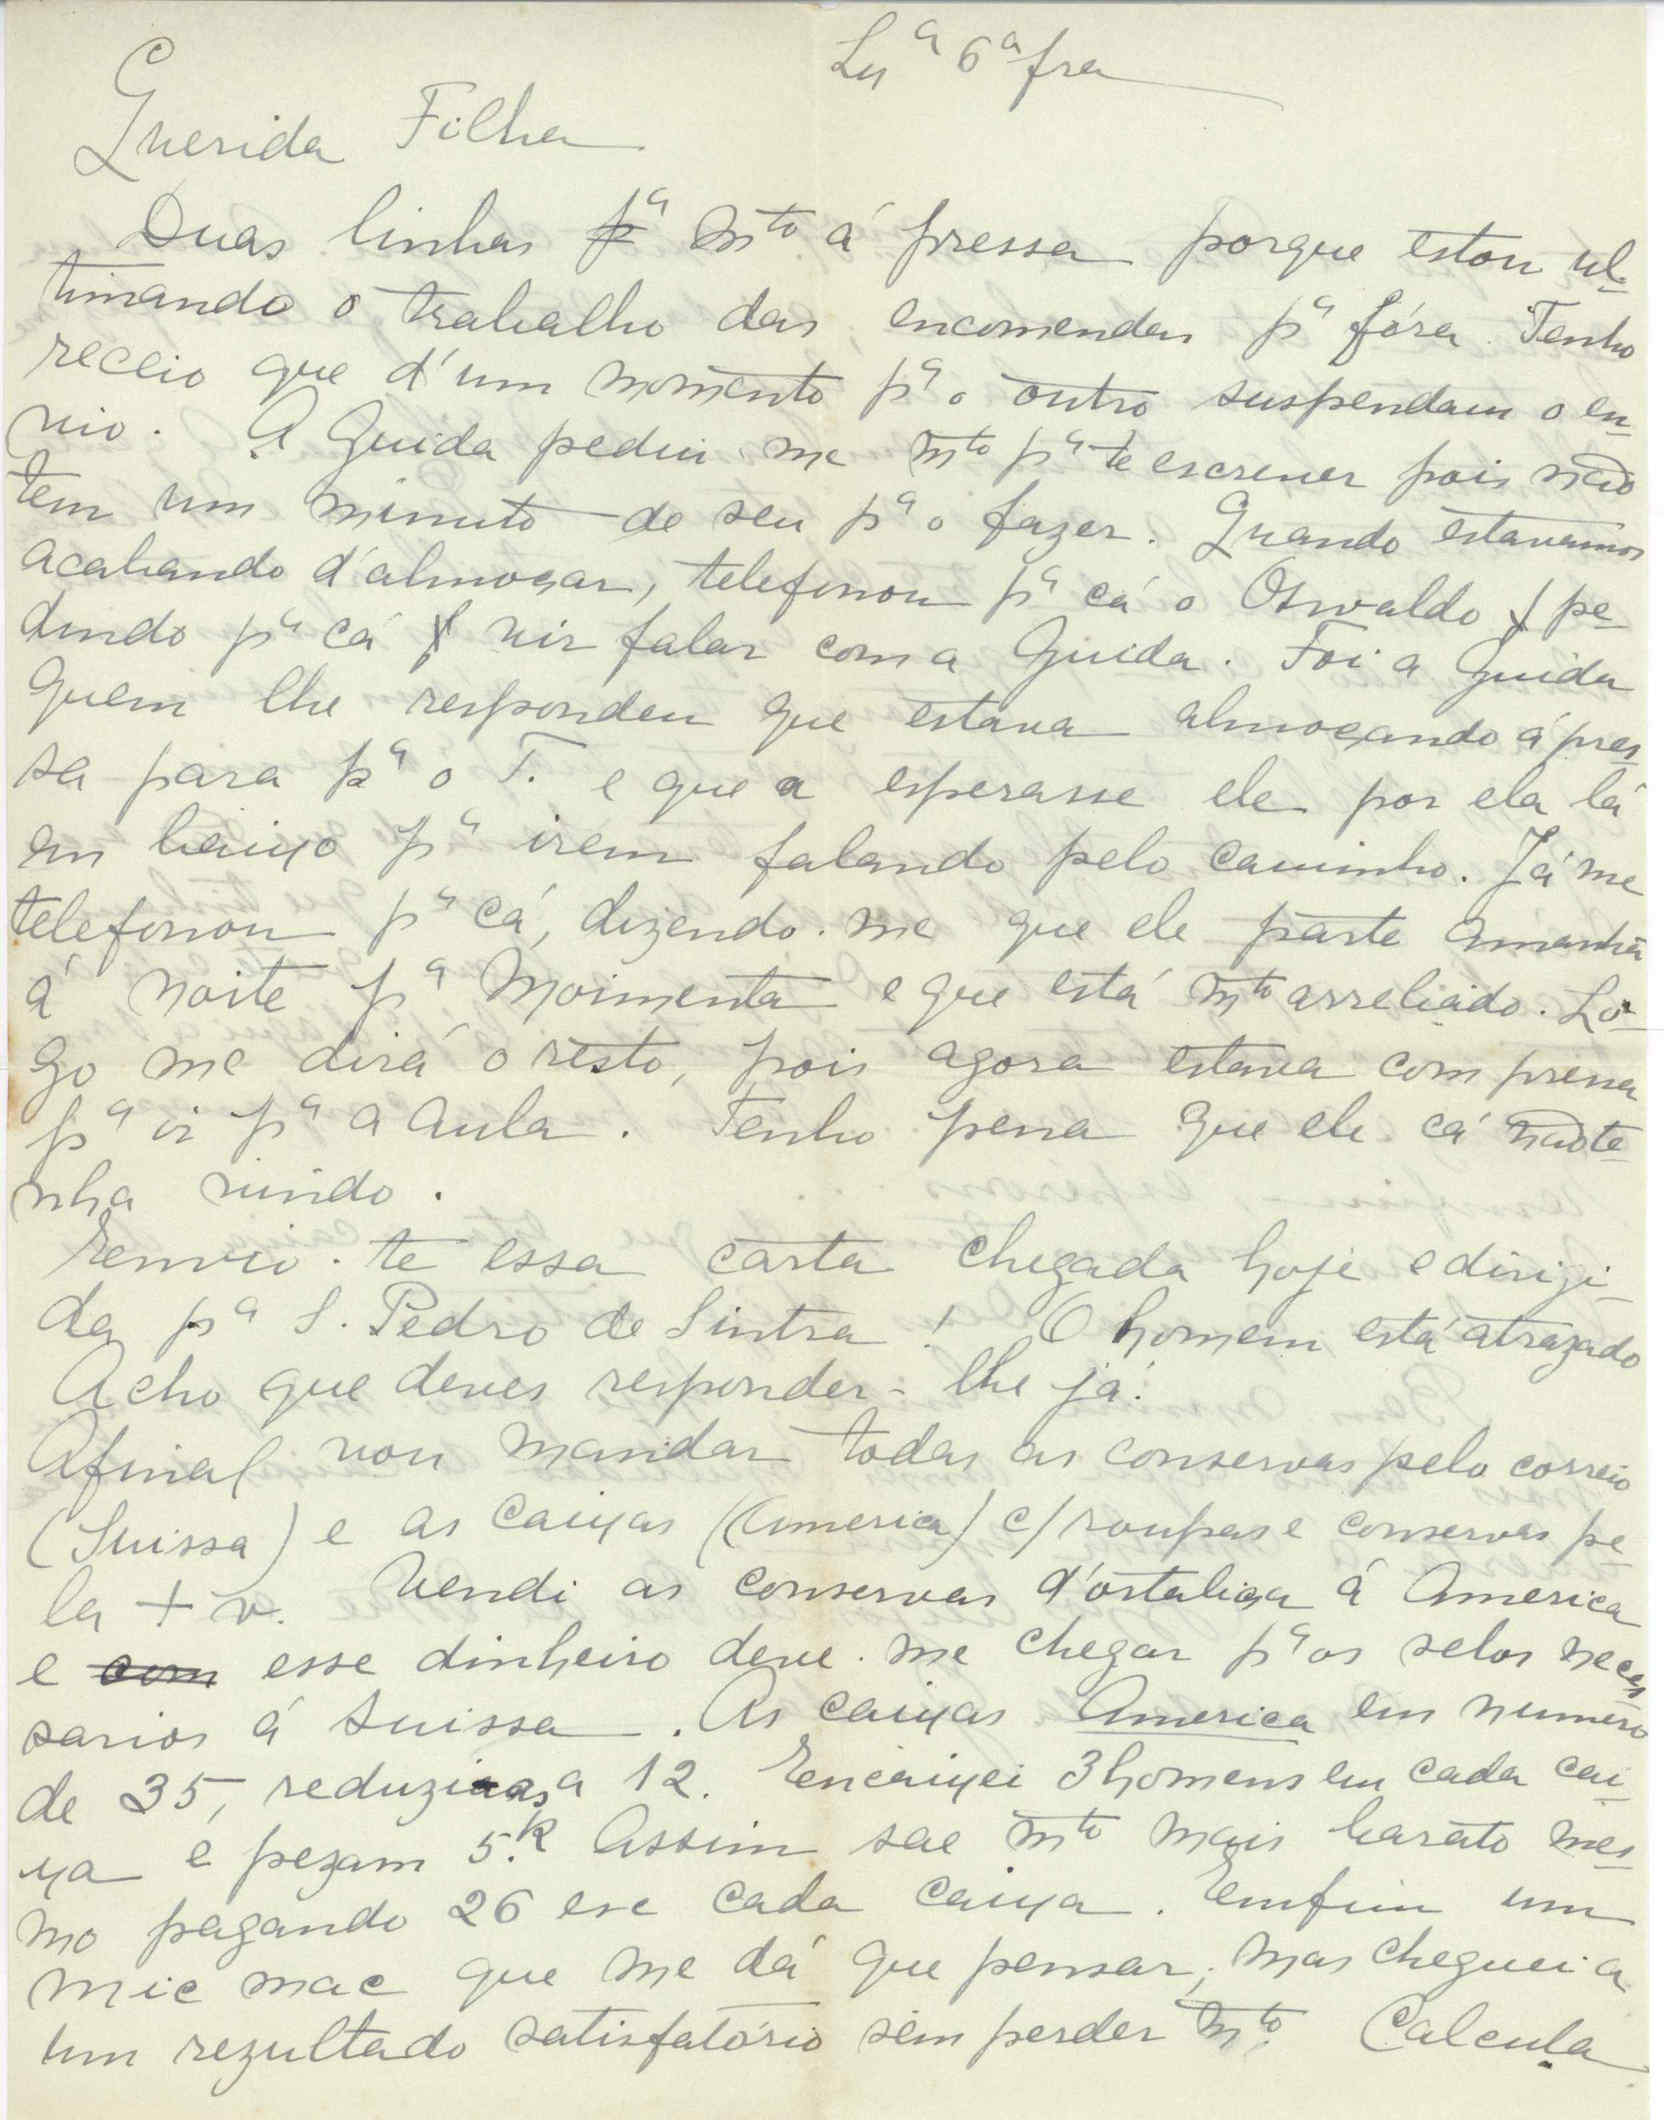 Lxª 6ª fra
Querida Filha
Duas linhas pª mto á pressa porque estou ul-
timando o trabalho das encomendas pª fóra. Tenho
receio que d'um momento pª o outro suspendam o en-
vio. A Guida pediu-me mto pª te escrever pois não
tem um minuto de seu pª o fazer. Quando estavamos
acabando d'almoçar, telefonou pª cá o Oswaldo pe-
dindo pª cá vir falar com a Guida. Foi a Guida
quem lhe respondeu que estava almoçando á pres-
sa para pª o T. e que a esperasse ele por ela lá
em baixo pª irem falando pelo caminho. Já me
telefonou pª cá, dizendo-me que ele parte amanhã
á noite pª Moimenta e que está mto arreliado. Lo-
go me dirá o resto, pois agora estava com pressa
pª ir pª a aula. Tenho pena que ele cá não te-
nha vindo.
Envio-te essa carta chegada hoje e dirigi-
da pª S. Pedro de Sintra! O homem está atrazado
Acho que deves responder-lhe já.
Afinal vou mandar todas as conservas pelo correio
(Suissa) e as caixas (America) c/ roupas e conservas pe-
la + v. Vendi as conservas d'ortaliça á America
e com esse dinheiro deve-me chegar pª os selos neces
sarios á Suissa. As caixas America em numero
de 35, reduzi-as a 12. Encaixei 3 homens em cada cai-
xa e pezam 5.k Assim sae mto mais barato mes-
mo pagando 26 esc cada caixa. Emfim um
mic mac que me dá que pensar, mas cheguei a
um rezultado satisfatório sem perder mto. Calcula